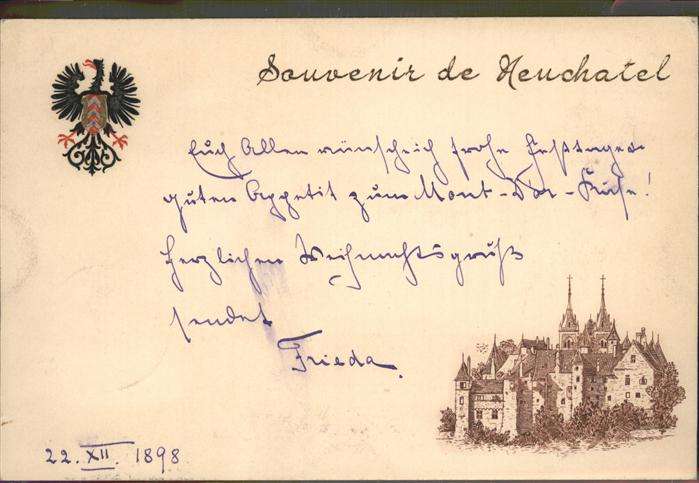 Souvenir de Neuchatel
Euch Allen wünsche ich frohe Festtage u.
guten Appetit zum Mont-d'or-Käse!
Herzlichen Weihnachtsgruß
sendet
Frieda.
22. XII. 1898